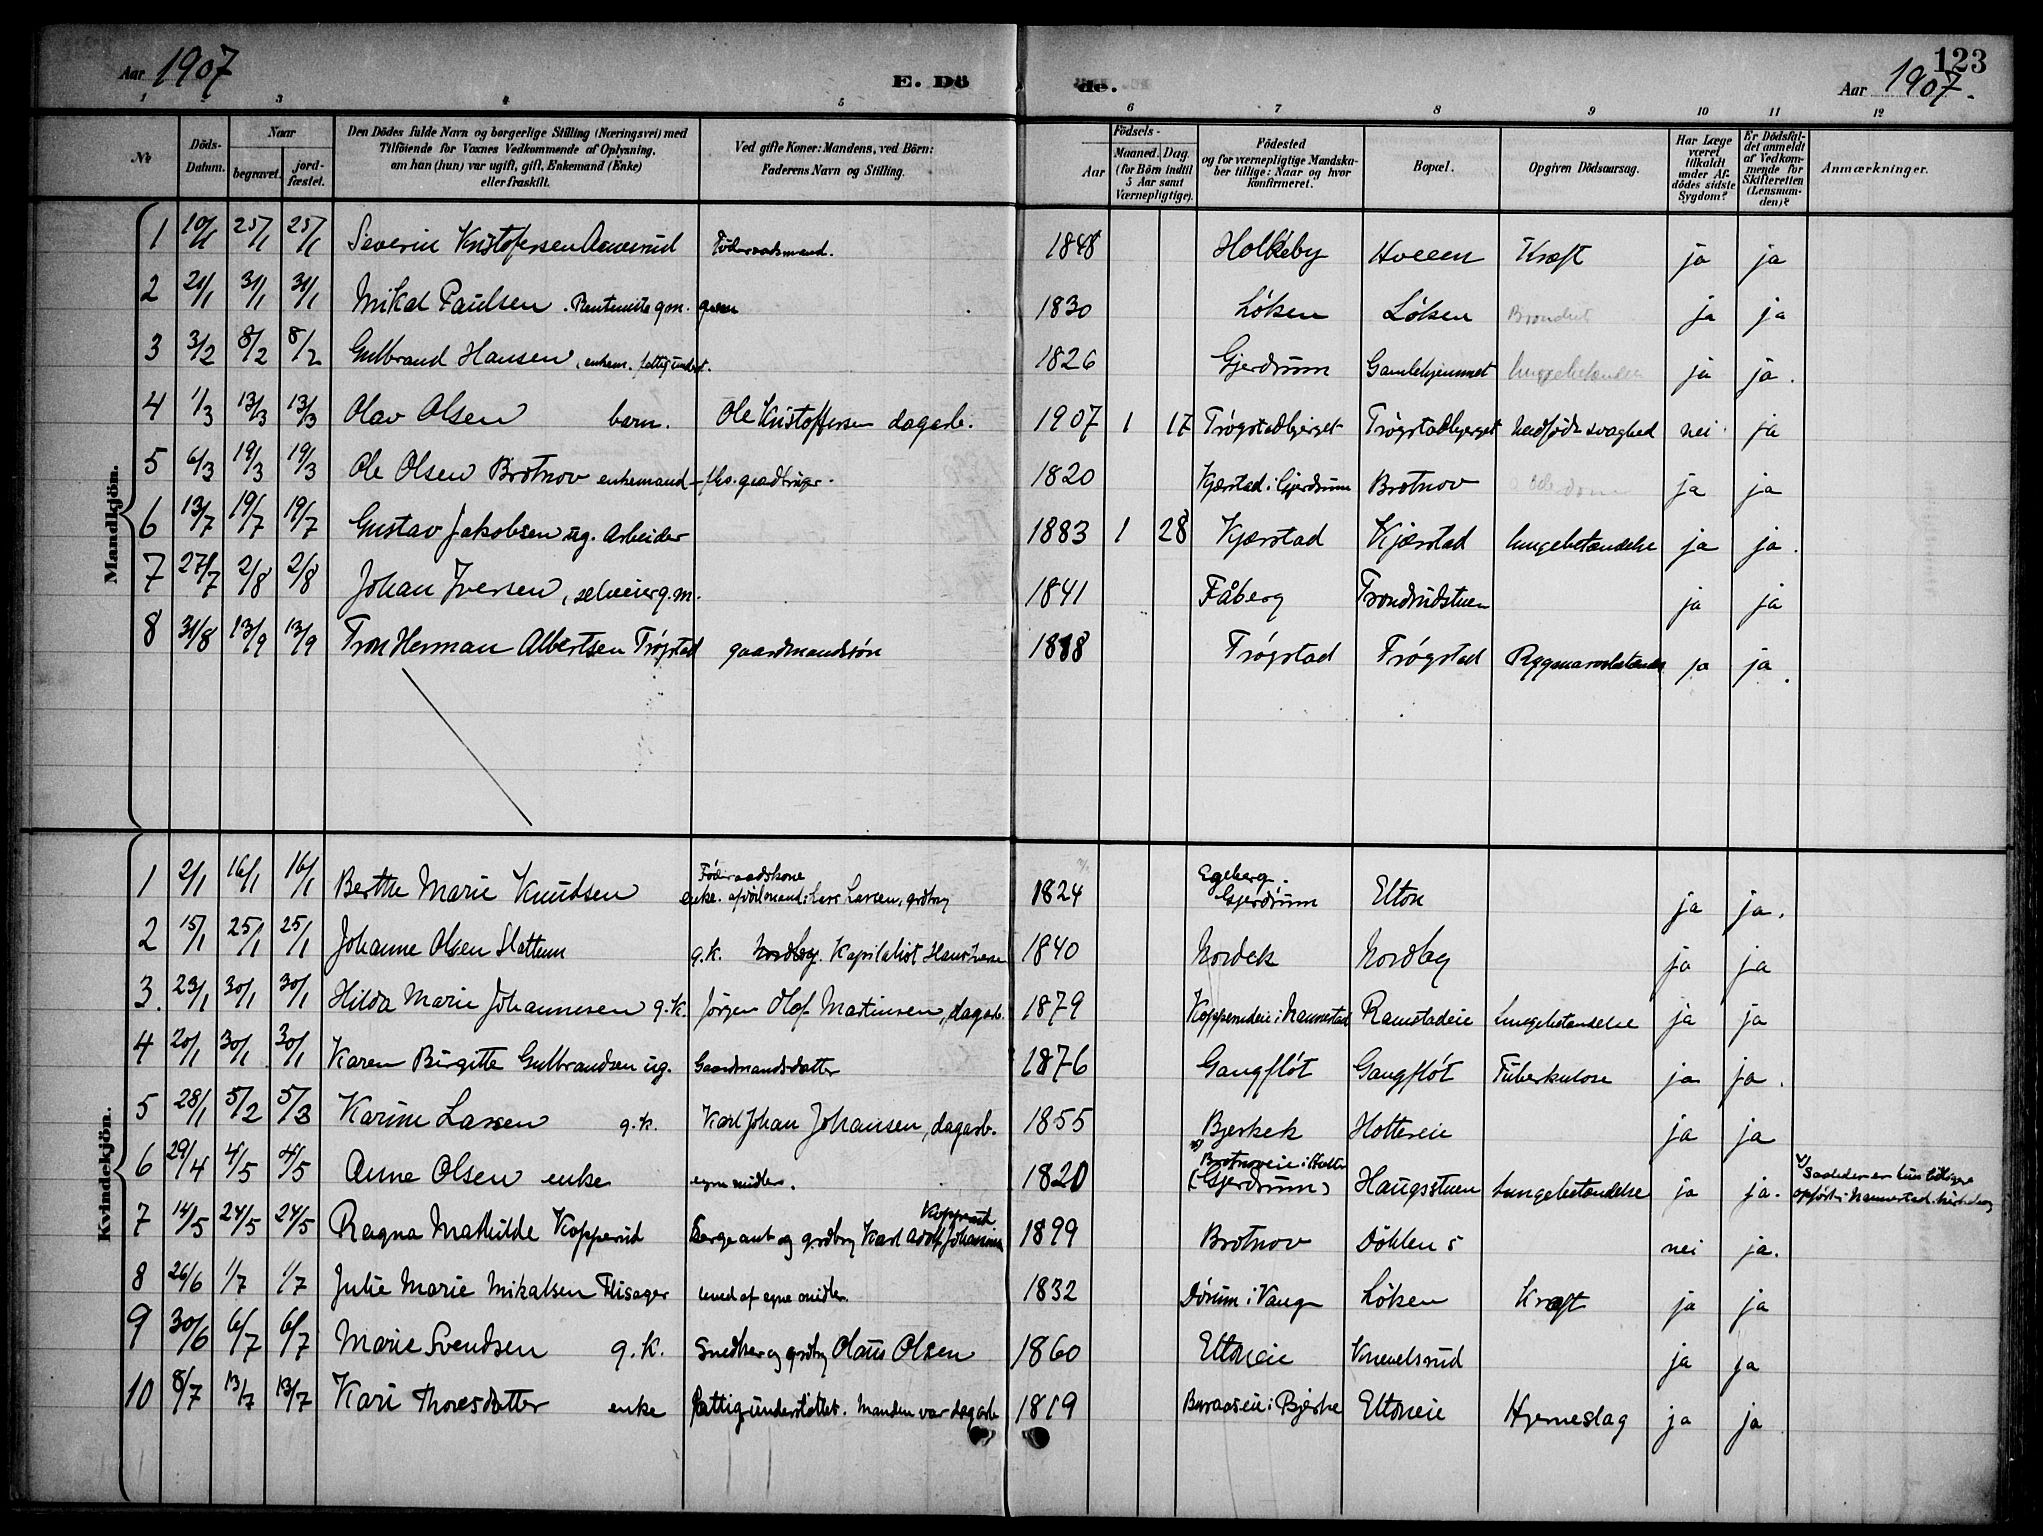 Aar 1907 E. Dö
de. Aar 1907. 123
1 2 3 4 5 6 7 8 9 10 11 12
No
Döds-Datum.
Naar
begravet.
jord-fæstet.
Den Dödes fulde Navn og borgerlige Stilling (Næringsvei) med
Tilföiende for Voxnes Vedkommende af Oplysning,
om han (hun) var ugift, gift, Enkemand (Enke)
eller fraskilt.
Ved gifte Koner: Mandens, ved Börn:
Faderens Navn og Stilling.
Födsels-
Aar
Maaned. Dag.
(for Börn indtil
5 Aar samt
Værnepligtige).
Födested
og for værnepligtige Mandska-
ber tillige: Naar og hvor
konfirmeret.
Bopæl.
Opgiven Dödsaarsag.
Har Læge
været
tilkaldt
under Af-
dödes sidste
Sygdom?
Er Dödsfal-
det anmeldt
af Vedkom-
mende for
Skifteretten
(Lensman-
den)?
Anmærkninger.
Mandkjön.
1 10/1 25/1 25/1 Severin Kristofersen Föderaadsmand. 1848 Holkeby Kræft ja ja
2 21/1 31/1 31/1 Mikal Paulsen 1830 Löken Löken ja ja
3 3/2 8/2 8/2 Gulbrand Hansen, enkem. 1826 Gjerdrum Gamlehjemmet ja ja.
4 1/3 13/3 13/3 Olav Olsen barn. Ole Kristoffersen dagarb. 1907 1 17 Trögstadbjerget Trögstadbjerget Medfödt svaghed nei ja
5 6/3 19/3 19/3 Ole Olsen Brotnov enkemand 1820 Kjærstad i Gjerdrum Brotnov ja ja
6 13/7 19/7 19/7 Gustav Jakobsen ug. Arbeider 1883 1 28 Kjærstad Kjærstad lungebetændelse ja ja.
7 27/7 2/8 2/8 Johan Iversen, selveier g.m. 1841 Fåberg Trondrudstuen ja ja
8 31/8 13/9 13/9 Tron Herman Albertsen Trögstad gaardmandssön Trögstad Trögstad ja ja.
Kvindekjön.
1 2/1 16/1 16/1 Berthe Marie Knudsen Föderaadskone
enke. Lars Larsen, grdbrg 1824 Egeberg.
Gjerdrum Elton ja ja.
2 15/1 25/1 25/1 Johanne Olsen Slattum g.k. Nordby. Kapitalist 1840 Nordek Nordby ja ja
3. 23/1 30/1 30/1 Hilda Marie Johannesen g.k. Jörgen Olof Martinsen, dagarb. 1879 Ramstadeie Lungebetændelse ja ja
4 20/1 30/1 30/1 Karen Birgitte Gulbrandsen ug. Gaardmandsdatter 1876 Gangflöt Gangflöt Tuberkulose ja ja.
5 28/1 5/2 5/3 Karine Larsen g.k. Karl Johan Johansen, dagarb. 1855 Bjerkek Holtereie ja ja
6 29/4 4/5 4/5 Anne Olsen enke egne midler. 1820 Brotnoveie i Holter
(Gjerdrum) Haugsstuen Lungebetændelse ja ja. Saaledes er hun tidligere
opfört i Nannestad
7 14/5 24/5 24/5 Ragna Mathilde Kopperud Sergeant og grdbrg Karl Adolf Johannesen Kopperud 1899 Brotnov Döhlen s nei ja.
8 26/6 1/7 1/7 Julie Marie Mikalsen Flisager levet af egne midler. 1832 Dörum i Vang Löken Kræft ja ja
9 30/6 6/7 6/7 Marie Svendsen g.k. Snedker og grdbrg Olaus Olsen 1860 Eltoneie Knevelsrud ja ja
10 8/7 13/7 13/7 Kari Thoresdatter enke Fattigunderstöttet. Manden var dagarb 1819 Buraaseie i Bjerke Eltoneie Hjerneslag ja ja